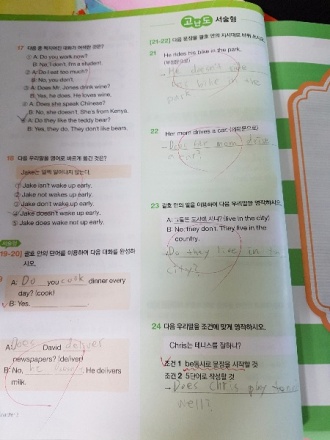 고난도 서술형
17 다음 중 짝지어진 대화가 어색한 것은?
① A: Do you work now?
B: No, I don't. I'm a student.
② A: Do I eat too much?
B: No, you don't.
③ A: Does Mr. Jones drink wine?
B: Yes, he does. He loves wine.
④ A: Does she speak Chinese?
B: No, she doesn't. She's from Kenya.
A: Do they like the teddy bear?
B: Yes, they do. They don't like bears.
18 다음 우리말을 영어로 바르게 옮긴 것은?
Jake는 일찍 일어나지 않는다.
① Jake isn't wake up early.
② Jake not wakes up early.
③ Jake don't wake up early.
④ Jake doesn't wake up early.
⑤ Jake does wake not up early.
[19-20] 괄호 안의 단어를 이용하여 다음 대화를 완성하시오.
A: Do you cook dinner every
day? (cook)
B: Yes,
A: Does David deliver
newspapers? (deliver)
B: No, He delivers
milk.
[21-22] 다음 문장을 괄호 안의 지시대로
21 He rides his bike in the park.
He doesn't
park
22 Her mom drives a car. (의문문으로)
Does her mom drive
23 괄호 안의 말을 이용하여 다음 우리말을 영작하시오.
A: 그들은 도시에 사니? (live in the city)
B: No, they don't. They live in the
country.
Do they live in
city?
24 다음 우리말을 조건에 맞게 영작하시오.
Chris는 테니스를 잘하니?
조건 1 be동사로 문장을 시작할 것
조건 2 5단어로 작성할 것
Does Chris play
well?